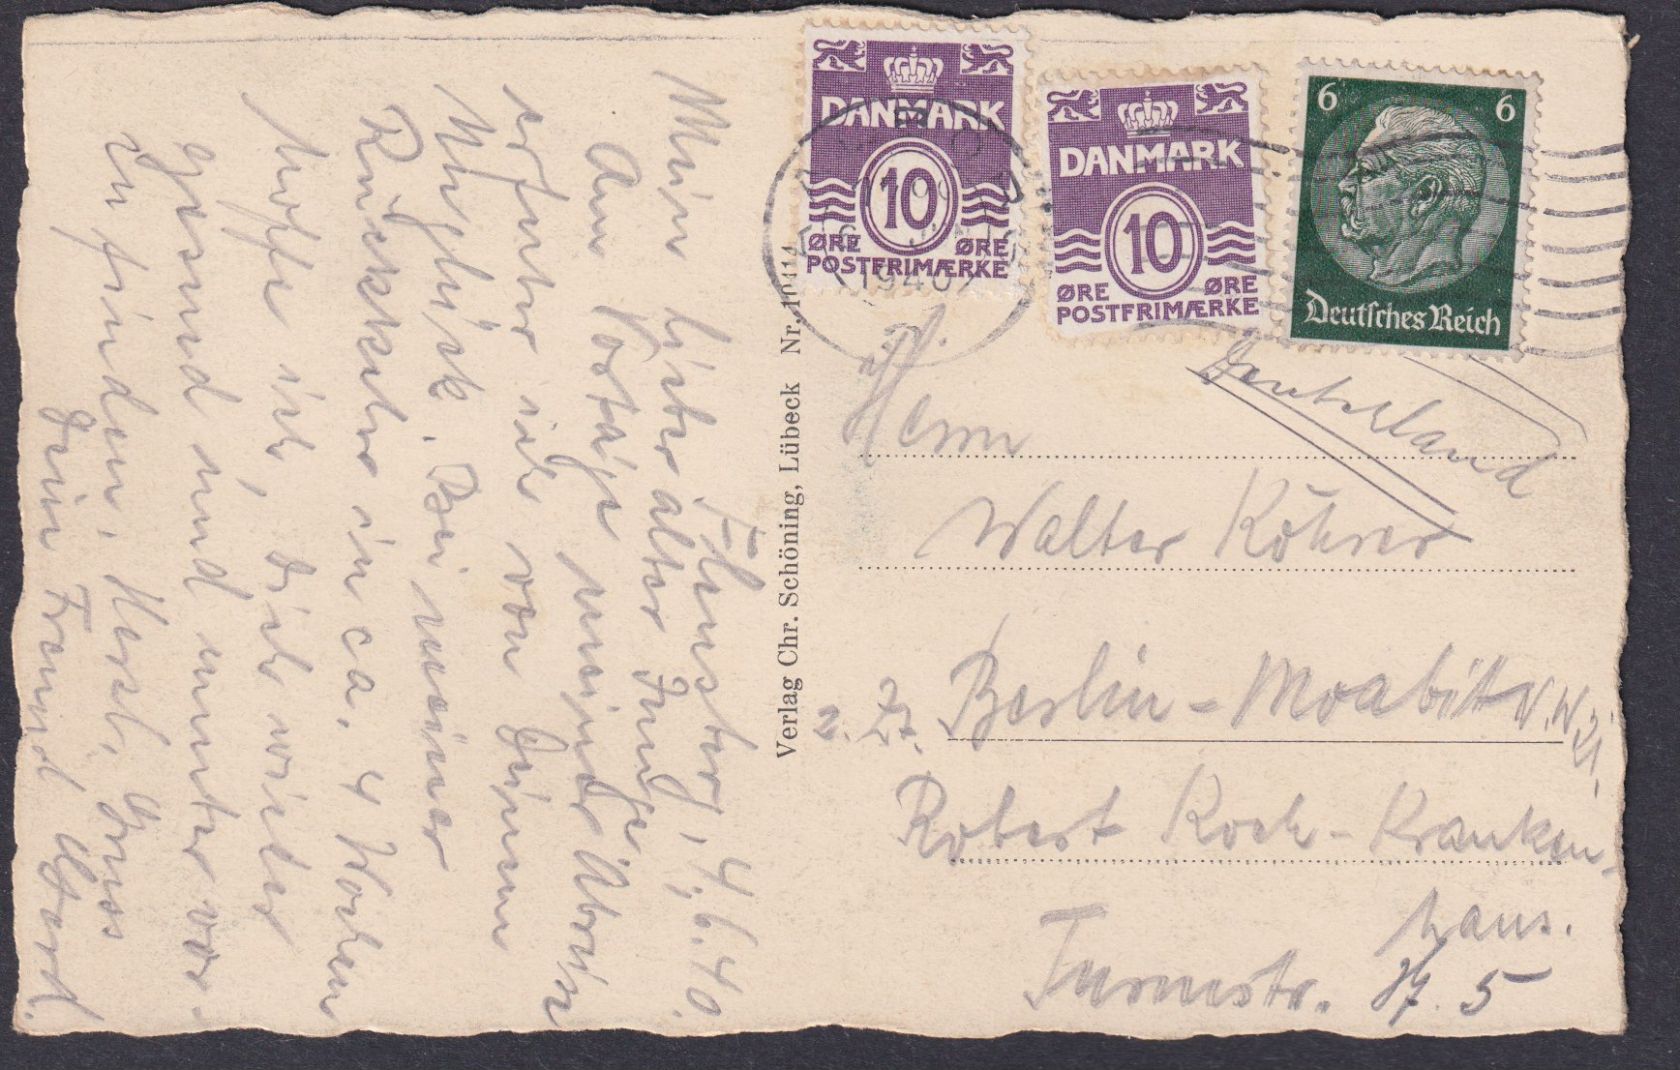 Flensburg, 4.6.40.
Mein lieber alter Junge!
Am Vortage meiner Abreise
erfuhr ich von Deinem
Unglück. Bei meiner
Rückkehr in ca. 4 Wochen
hoffe ich, Dich wieder
gesund und munter vor-
zufinden. Herzl. Gruss
Dein Freund Gerd.
Verlag Chr. Schöning, Lübeck Nr. 10414
DANMARK
10
ØRE ØRE
POSTFRIMÆRKE
DANMARK
10
ØRE ØRE
POSTFRIMÆRKE
6 6
Deutsches Reich
1940
Deutschland
Herrn
Walter Köhrer
z. Zt. Berlin-Moabit N.W. 21.
Robert Koch-Kranken-
haus.
Turmstr.